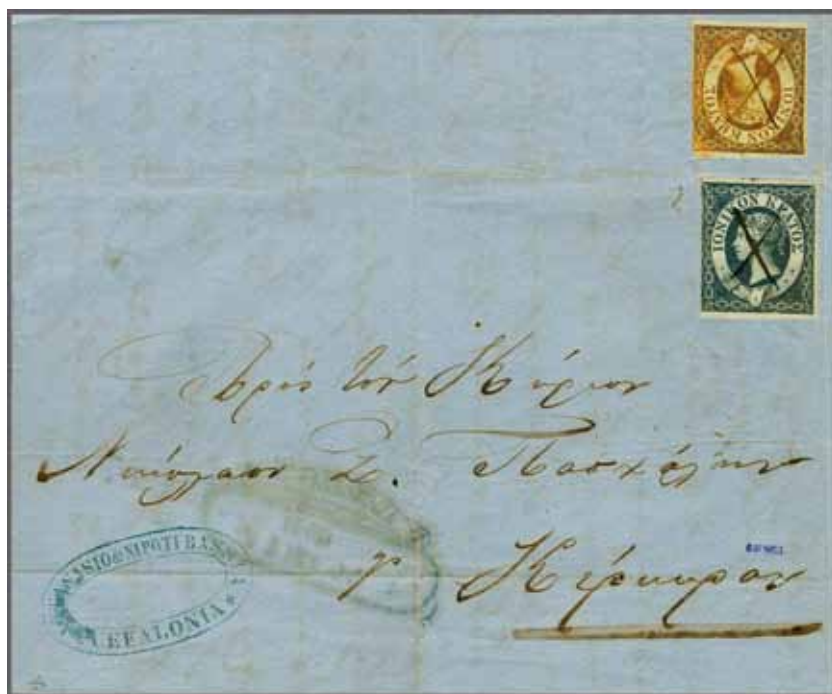 ΙΟΝΙΚΟΝ ΚΡΑΤΟΣ
ΙΟΝΙΚΟΝ ΚΡΑΤΟΣ
Πρὸς τὸν Κύριον
Νικόλαον Σ. Πασχάλην
Κέρκυραν
& NIPOTI
CEFALONIA